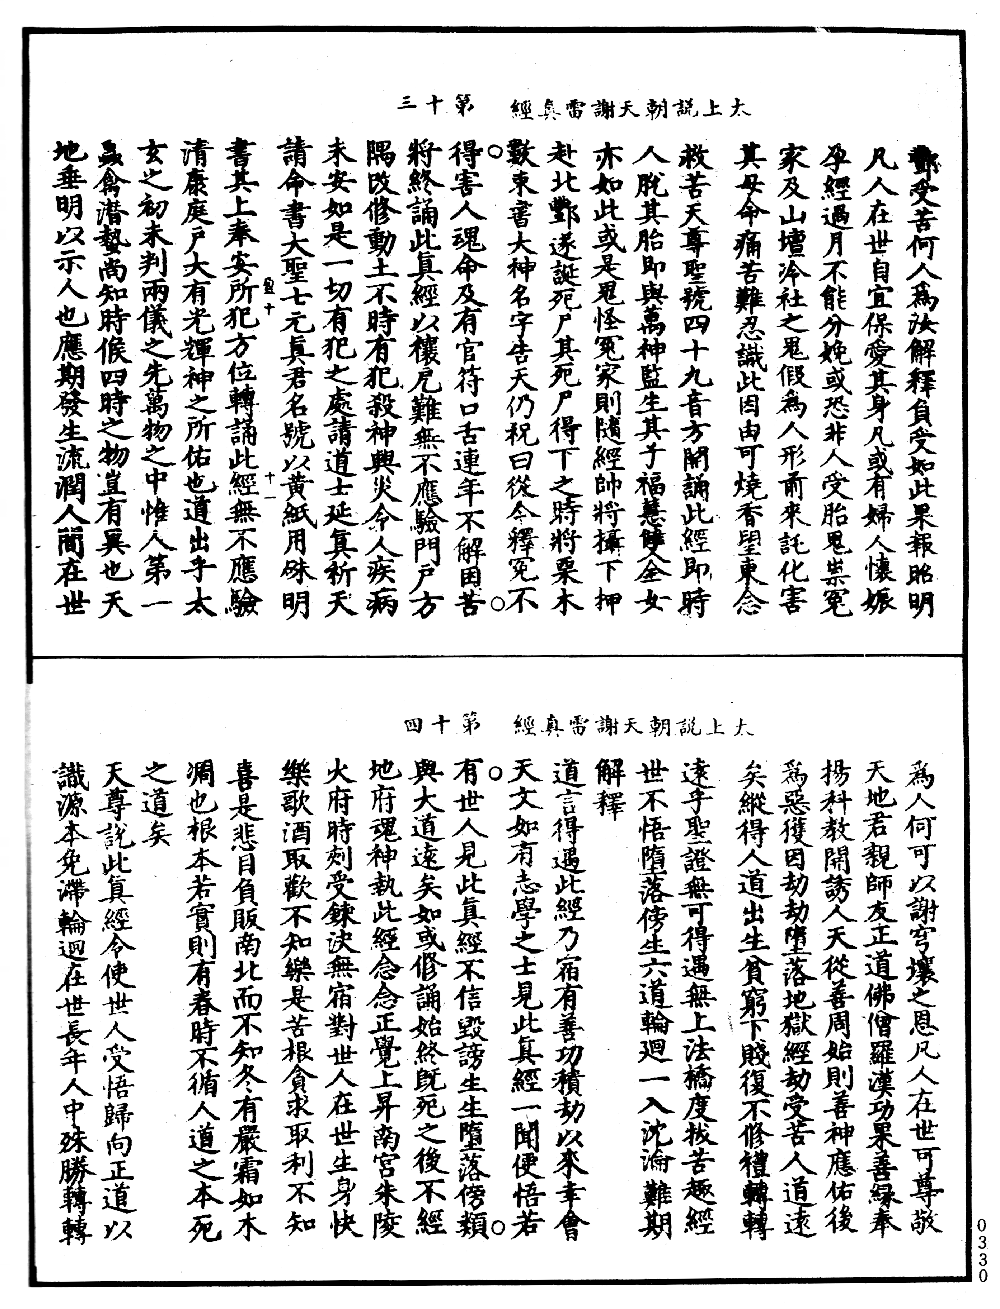 太上說朝天謝雷真經　第十三
酆受苦何人為汝解釋負受如此果報昭明
凡人在世自宜保愛其身凡或有婦人懷娠
孕經過月不能分娩或恐非人受胎鬼祟冤
家及山壇冷社之鬼假為人形前來託化害
其母命痛苦難忍識此因由可燒香望東念
救苦天尊聖號四十九音方開誦此經即時
人脫其胎即與萬神監生其子福慧雙全女
亦如此或是鬼怪冤家則隨經帥將攝下押
赴北酆遂誕死尸其死尸得下之時將槀木
數束書大神名字告天仍祝曰從今釋冤不
得害人魂命及有官符口舌連年不解困苦
將終誦此真經以禳厄難無不應驗門戶方
隅改修動土不時有犯殺神興災令人疾病
未安如是一切有犯之處請道士延真祈天
請命書大聖七元真君名號以黃紙用硃明
書其上奉安所犯方位轉誦此經無不應驗
清康庭戶大有光輝神之所佑也道出乎太
玄之初未判兩儀之先萬物之中惟人第一
蟲禽潛蟄尚知時候四時之物豈有異也天
地垂明以示人也應期發生流潤人間在世
十一
太上說朝天謝雷真經　第十四
為人何可以謝穹壤之恩凡人在世可尊敬
天地君親師友正道佛僧羅漢功果善緣奉
揚科教開誘人天從善周始則善神應佑後
為惡獲因劫劫墮落地獄經劫受苦人道遠
矣縱得人道出生貧窮下賤復不修禮轉轉
遠乎聖證無可得遇無上法橋度拔苦趣經
世不悟墮落傍生六道輪迴一入沈淪難期
解釋
道言得遇此經乃宿有善功積劫以來幸會
天文如有志學之士見此真經一聞便悟若
有世人見此真經不信毀謗生生墮落傍類
與大道遠矣如或修誦始終既死之後不經
地府魂神執此經念念正覺上昇南宮朱陵
火府時刻受鍊決無宿對世人在世生身快
樂歌酒取歡不知樂是苦根貪求取利不知
喜是悲目負販南北而不知冬有嚴霜如木
凋也根本若實則有春時不循人道之本死
之道矣
天尊說此真經令使世人受悟歸向正道以
識源本免滯輪迴在世長年人中殊勝轉轉
0330